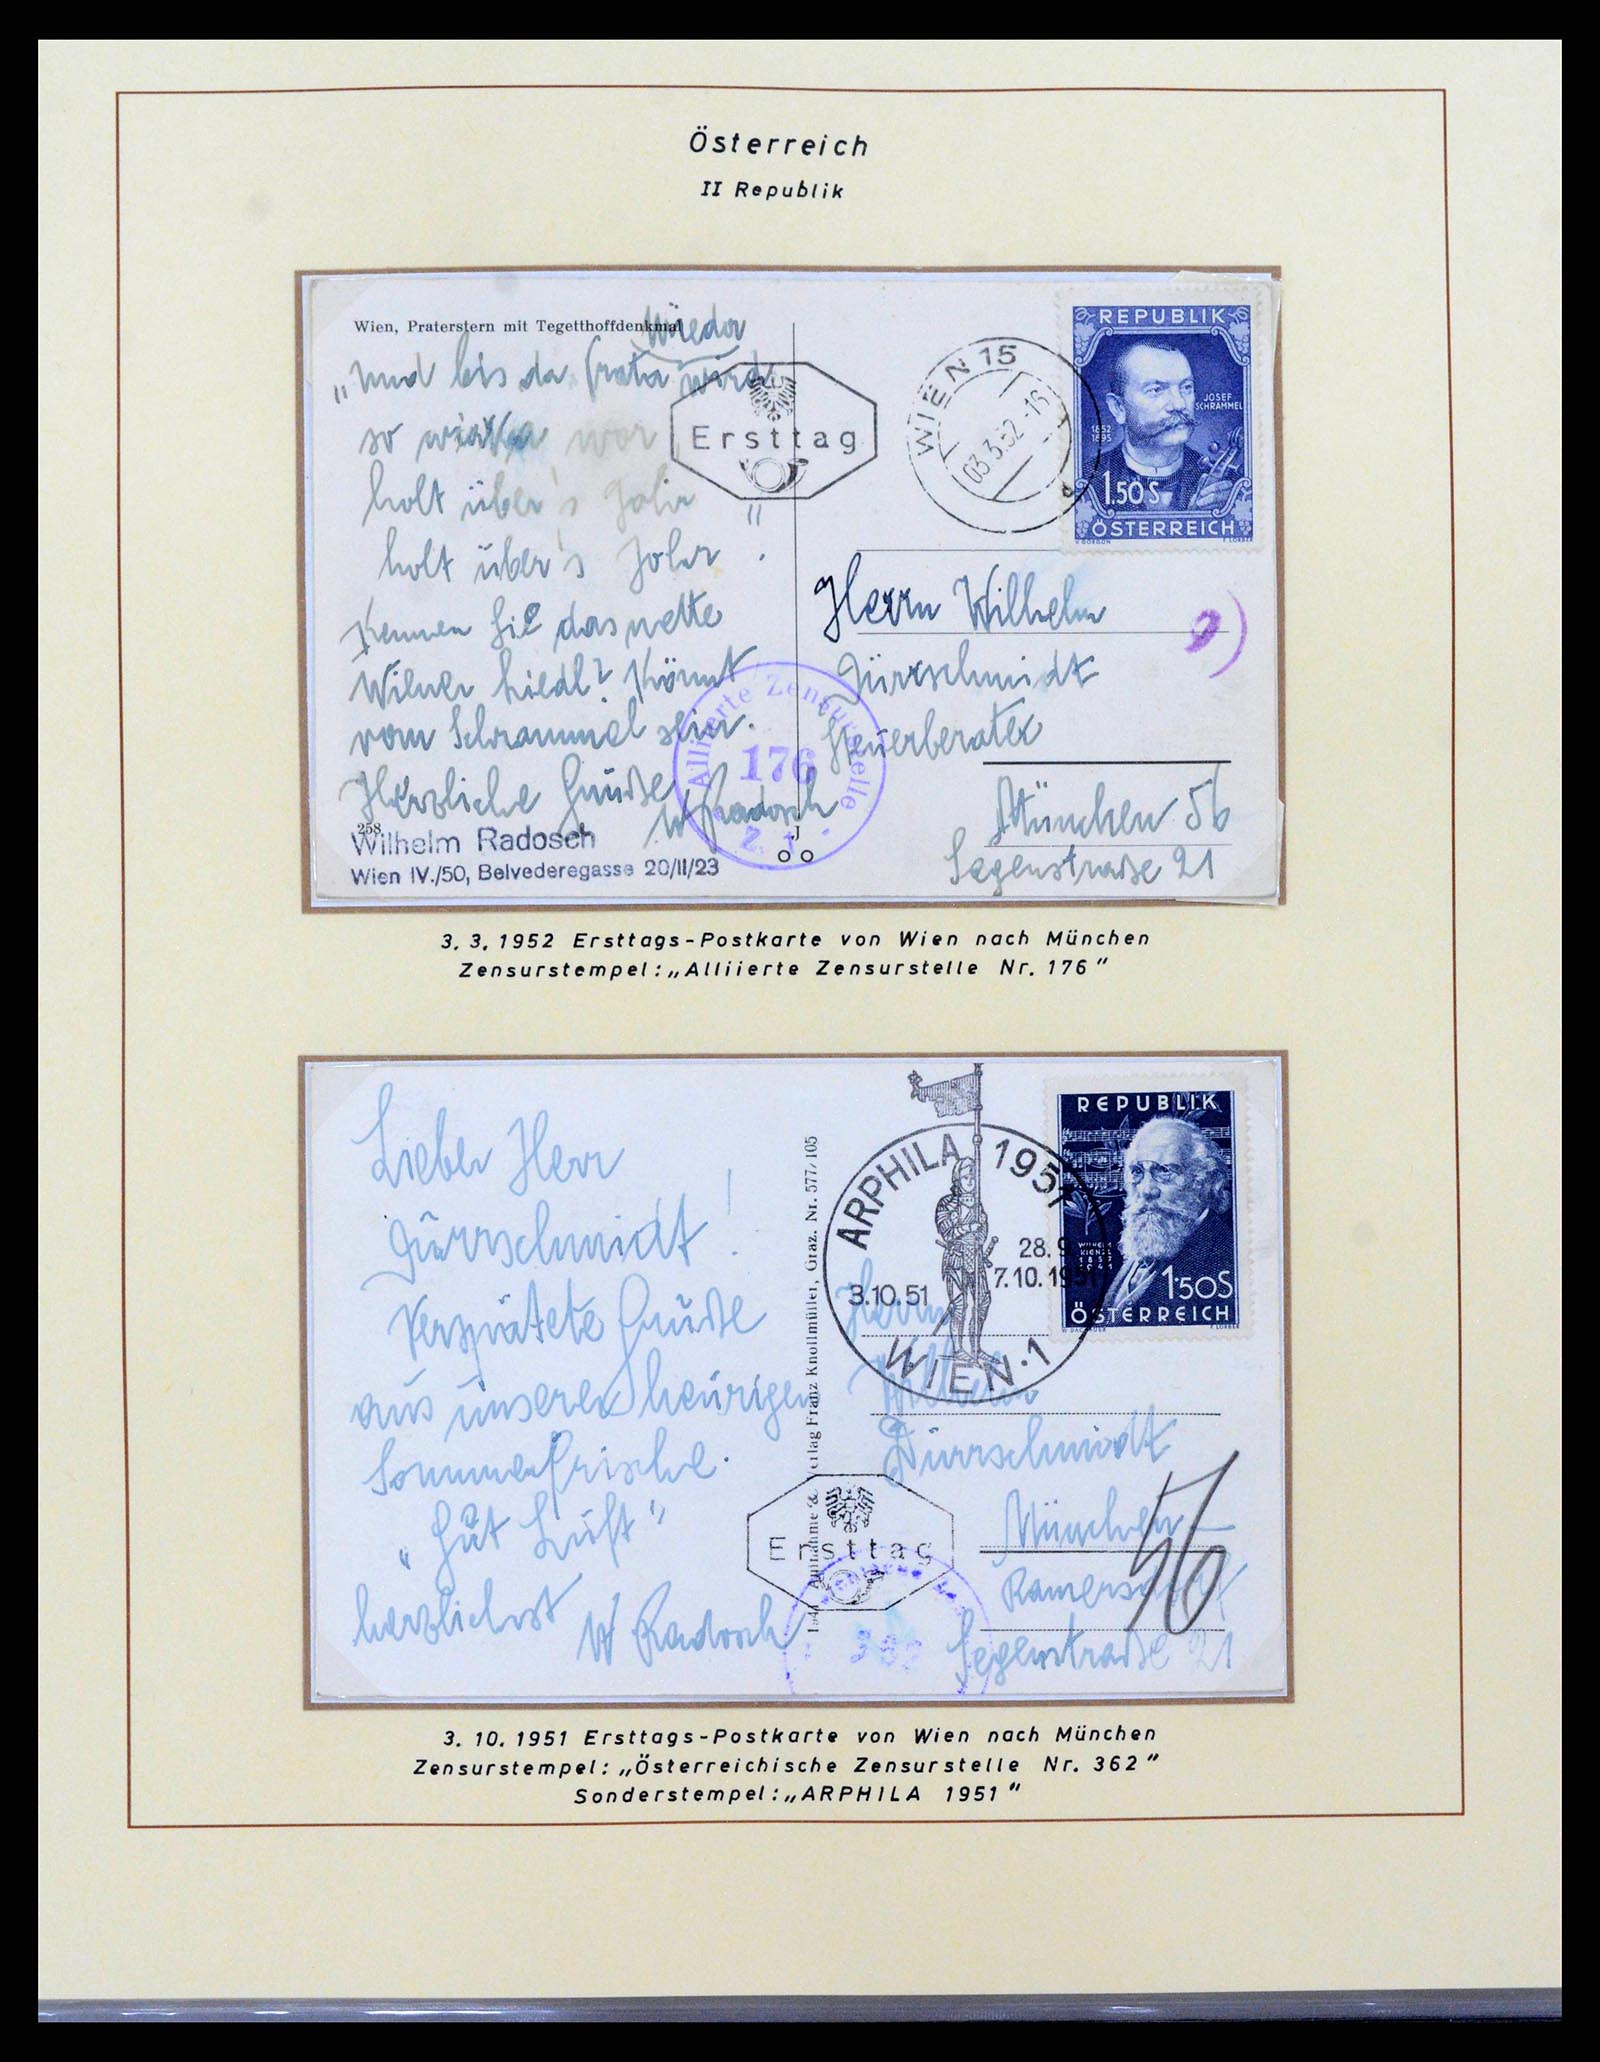 Österreich
II Republik
Wien, Praterstern mit Tegetthoffdenkmal
wieder
"Und bis da Prater wird
so wia a war
holt über's Johr
holt über's Johr".
Kennen Sie das nette
Wiener Liedl? Könnt
vom Schrammel sein.
Herzliche Grüße
W Radosch
258.
Wilhelm Radosch
Wien IV./50, Belvederegasse 20/II/23
Ersttag
WIEN 15
03.3.52-16
REPUBLIK
JOSEF
SCHRAMMEL
1852
1895
1.50 S
ÖSTERREICH
V. GORGON
F. LORBER
Herrn Wilhelm
Dürrschmidt
Steuerberater
München 56
Segenstraße 21
9)
Alliierte Zensurstelle
176
J
3. 3. 1952 Ersttags-Postkarte von Wien nach München
Zensurstempel: „Alliierte Zensurstelle Nr. 176"
Lieber Herr
Dürrschmidt!
Verspätete Grüße
aus unserer heurigen
Sommerfrische.
„Gut Luft"
herzlichst W Radosch
Verlag Franz Knollmüller, Graz. Nr. 577/105
Aufnahme &
ARPHILA 1951
28. 9.
7.10. 1951
3.10.51
WIEN · 1
REPUBLIK
WILHELM
KIENZL
1857
1941
1·50S
ÖSTERREICH
F. LORBER
Herrn
Wilhelm
Dürrschmidt
München
56
Ramersdorf
Segenstraße 21
Ersttag
3. 10. 1951 Ersttags-Postkarte von Wien nach München
Zensurstempel: „Österreichische Zensurstelle Nr. 362"
Sonderstempel: „ARPHILA 1951"